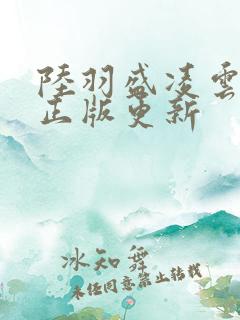 陸羽盛凌雲
正版更新
冰知舞
未任同意禁止转载